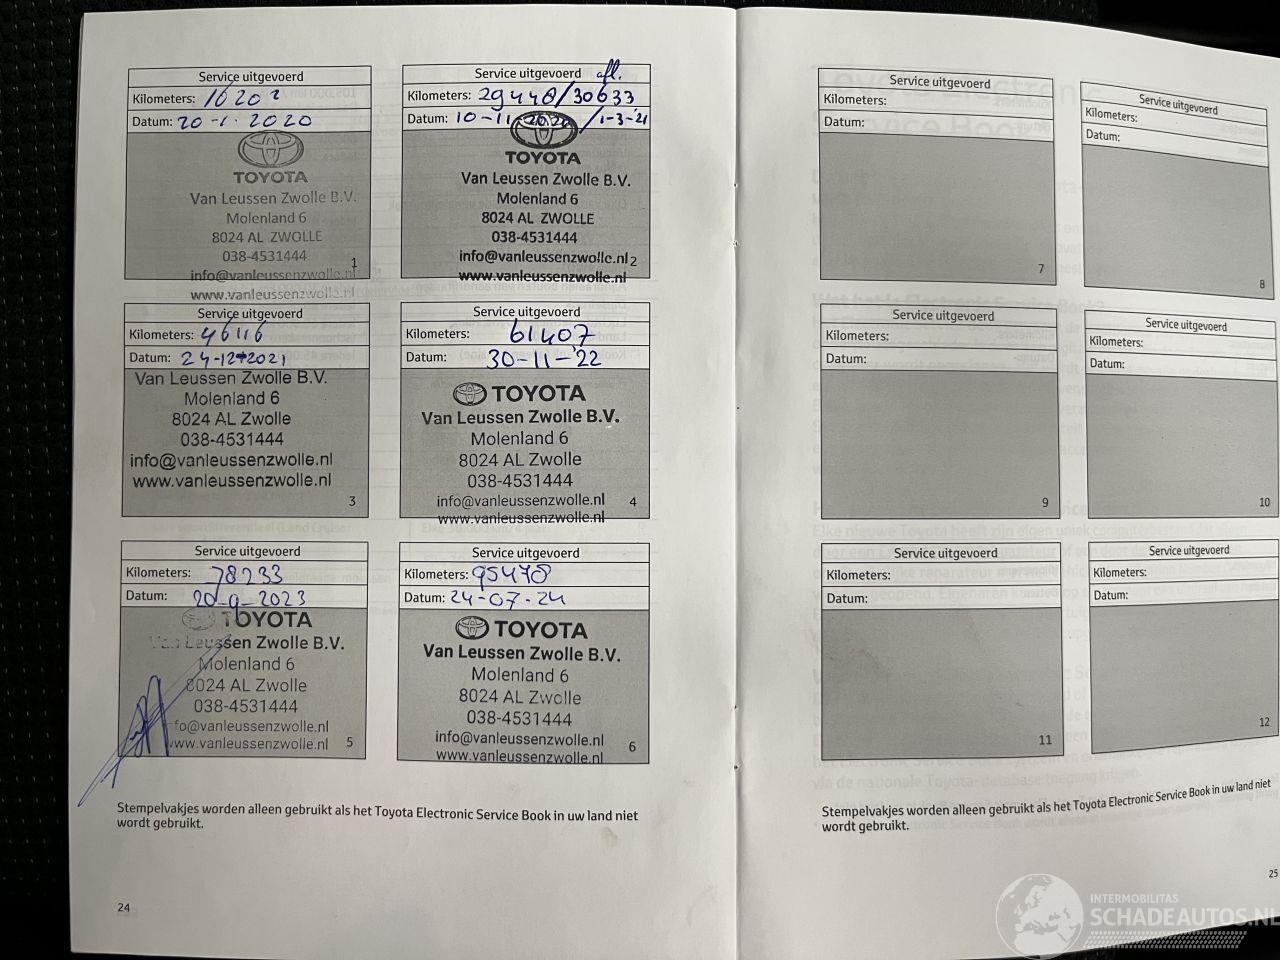 Service uitgevoerd
Kilometers: 16202
Datum: 20-1-2020
TOYOTA
Van Leussen Zwolle B.V.
Molenland 6
8024 AL ZWOLLE
038-4531444
1
info@vanleussenzwolle.nl
www.vanleussenzwolle.nl
Service uitgevoerd afl.
Kilometers: 29448/30633
Datum: 10-11-2020/1-3-'21
TOYOTA
Van Leussen Zwolle B.V.
Molenland 6
8024 AL ZWOLLE
038-4531444
info@vanleussenzwolle.nl 2
www.vanleussenzwolle.nl
Service uitgevoerd
Kilometers: 46116
Datum: 24-12-2021
Van Leussen Zwolle B.V.
Molenland 6
8024 AL Zwolle
038-4531444
info@vanleussenzwolle.nl
www.vanleussenzwolle.nl
3
Service uitgevoerd
Kilometers: 61407
Datum: 30-11-'22
TOYOTA
Van Leussen Zwolle B.V.
Molenland 6
8024 AL Zwolle
038-4531444
info@vanleussenzwolle.nl 4
www.vanleussenzwolle.nl
Service uitgevoerd
Kilometers: 78233
Datum: 20-9-2023
TOYOTA
Van Leussen Zwolle B.V.
Molenland 6
8024 AL Zwolle
038-4531444
info@vanleussenzwolle.nl
www.vanleussenzwolle.nl 5
Service uitgevoerd
Kilometers: 95478
Datum: 24-07-24
TOYOTA
Van Leussen Zwolle B.V.
Molenland 6
8024 AL Zwolle
038-4531444
info@vanleussenzwolle.nl 6
www.vanleussenzwolle.nl
Stempelvakjes worden alleen gebruikt als het Toyota Electronic Service Book in uw land niet
wordt gebruikt.
24
Service uitgevoerd
Kilometers:
Datum:
7
Service uitgevoerd
Kilometers:
Datum:
8
Service uitgevoerd
Kilometers:
Datum:
9
Service uitgevoerd
Kilometers:
Datum:
10
Service uitgevoerd
Kilometers:
Datum:
11
Service uitgevoerd
Kilometers:
Datum:
12
Stempelvakjes worden alleen gebruikt als het Toyota Electronic Service Book in uw land niet
wordt gebruikt.
25
INTERMOBILITAS
SCHADEAUTOS.NL